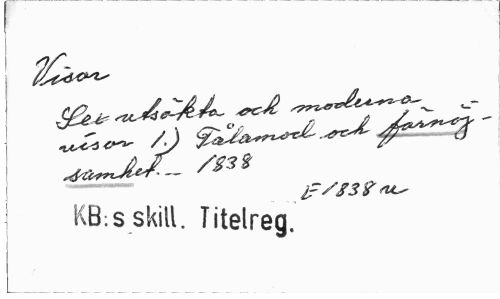 Visor
Sex utsökta och moderna
visor 1.) Tålamod och förnöj-
samhet. _ 1838
E 1838 u
KB:s skill. Titelreg.